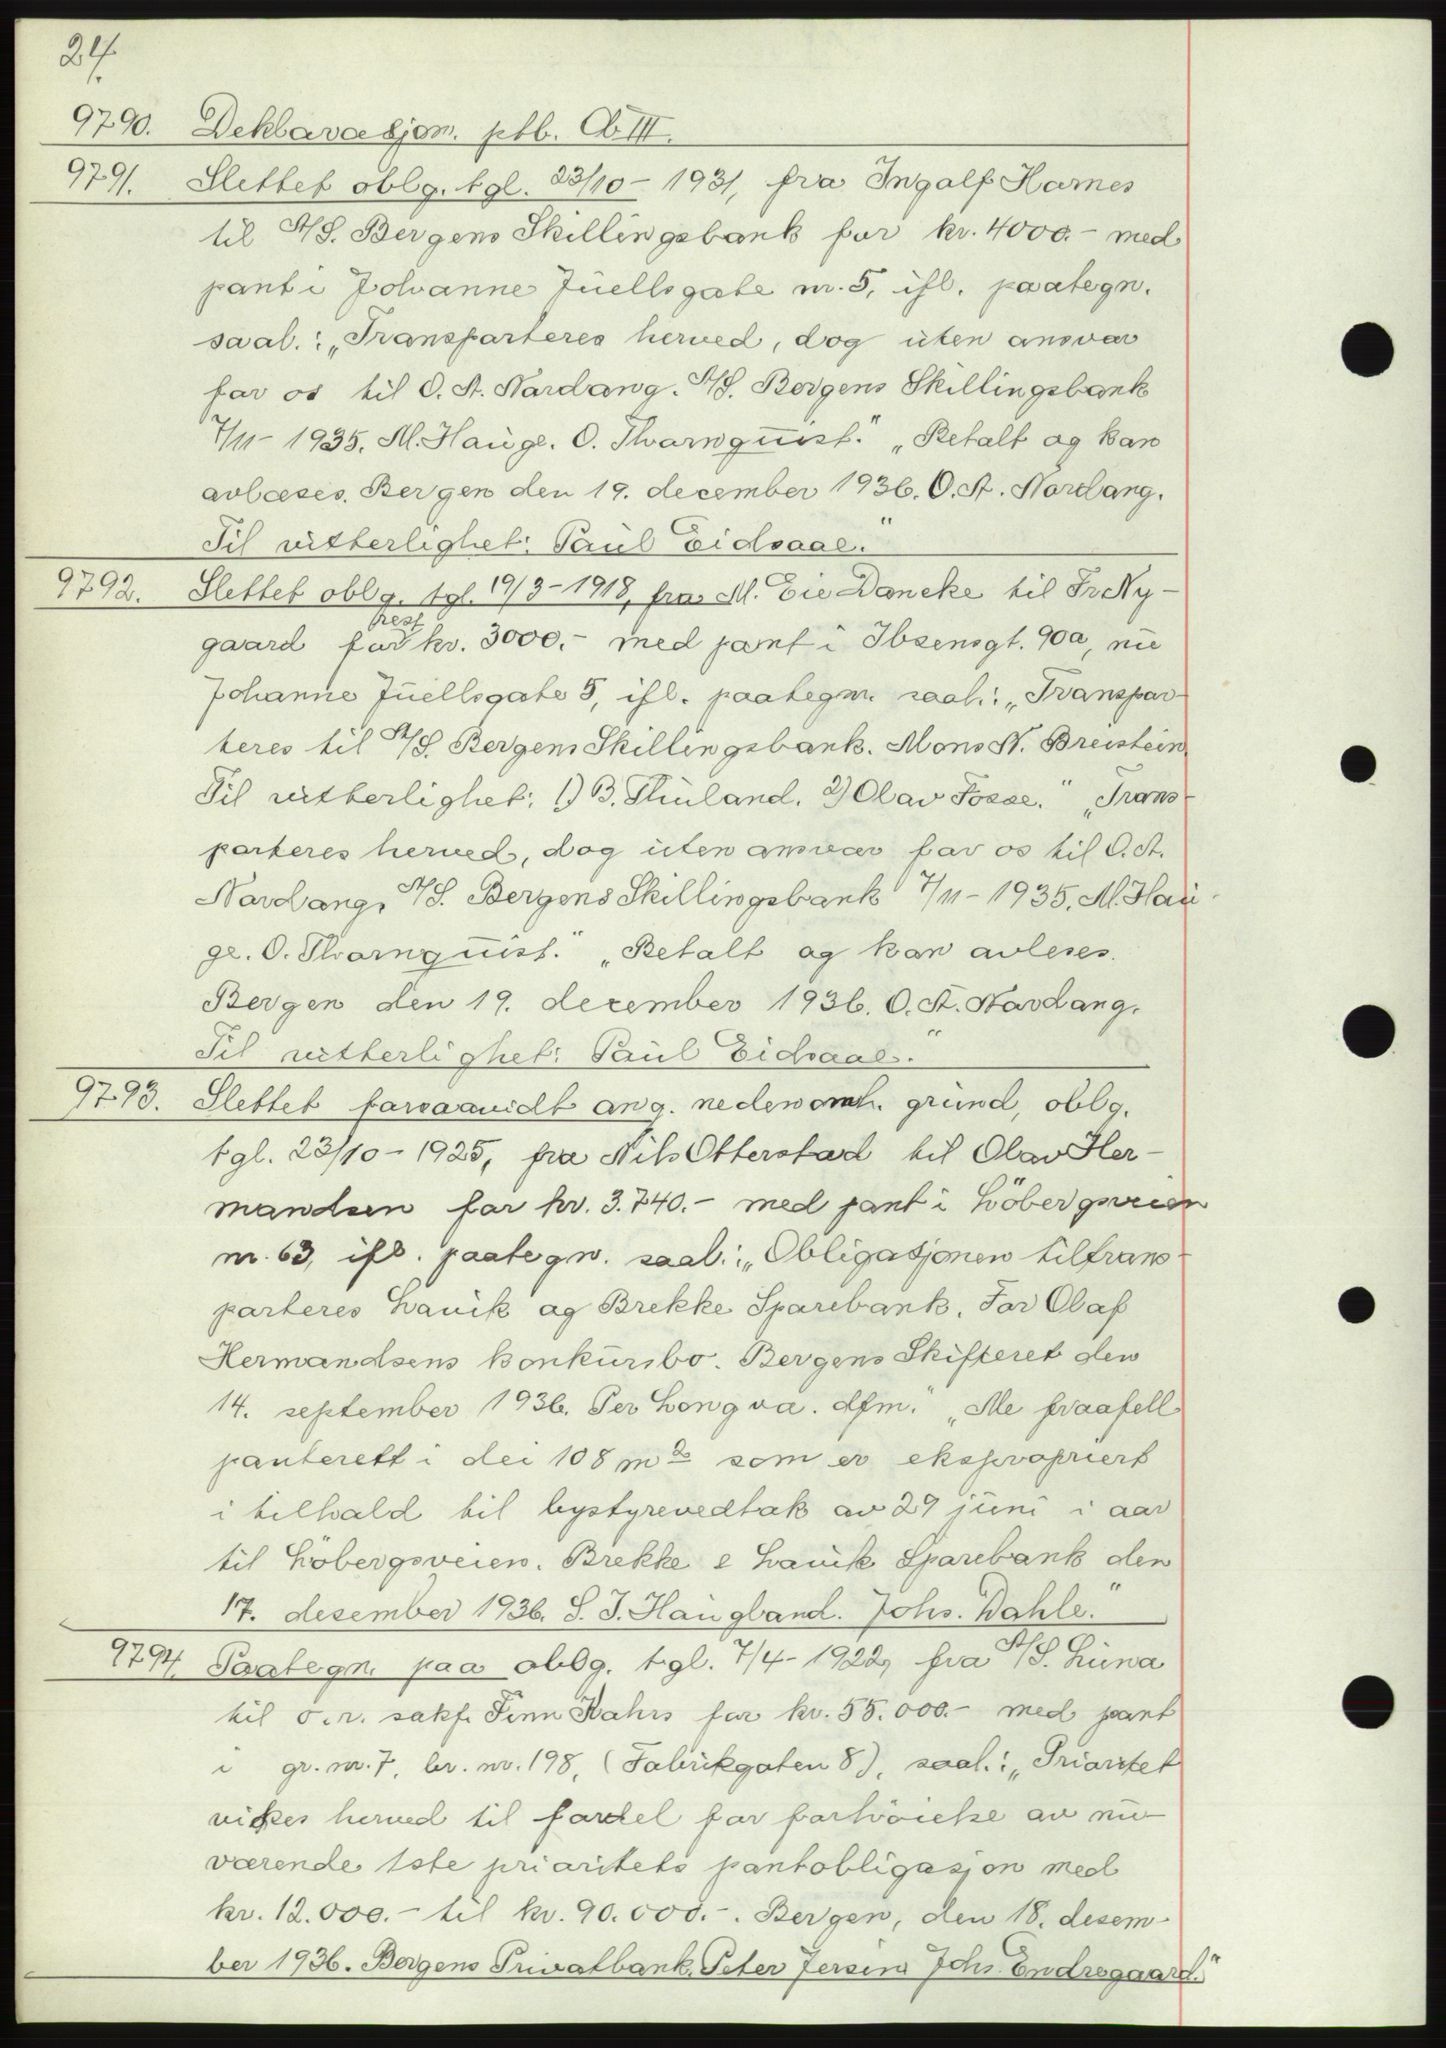 24.
9790. Deklarasjon. ptb. Cb III.
9791. Slettet oblg. tgl. 23/10 - 1931, fra Ingolf Hornes
til A/S. Bergens Skillingsbank for kr. 4000.- med
pant i Johanne Juellsgate nr. 5, ifl. paategn.
saal.: „Transporteres herved, dog uten ansvar
for os til O. A. Nordang. A/S. Bergens Skillingsbank
7/11 - 1935. M. Hauge. O. Thornquist." „Betalt og kan
avlæses. Bergen den 19. december 1936. O. A. Nordang.
Til vitterlighet: Paul Eidsaae."
9792. Slettet oblg. tgl. 19/3 - 1918, fra M. Eie Dancke til Fr Ny-
gaard for rest kr. 3000.- med pant i Ibsensgt. 90a, nu
Johanne Juellsgate 5, ifl. paategn. saal.: „Transpor-
teres til A/S. Bergens Skillingsbank. Mons N. Breistein
Til vitterlighet: 1) B. Thuland. 2) Olav Fosse." „Trans-
porteres herved, dog uten ansvar for os til O. A.
Nordang, A/S. Bergens Skillingsbank 7/11 - 1935. M. Hau-
ge. O. Thornquist." „Betalt og kan avleses.
Bergen den 19. december 1936. O. A. Nordang.
Til vitterlighet: Paul Eidsaae."
9793. Slettet forsaavidt ang. nedenomh. grund, oblg.
tgl. 23/10 - 1925, fra Nils Otterstad til Olav Her-
mandsen for kr. 3.740.- med pant i Löbergsveien
nr. 63, ifl. paategn. saal.: „Obligasjonen tiltrans-
porteres Lavik og Brekke Sparebank. For Olaf
Hermandsens konkursbo. Bergens Skifteret den
14. september 1936. Per Longva. dfm." „Me fraafell
panterett i dei 108 m2 som er ekspropriert
i tilhald til bystyrevedtak av 29 juni i aar
til Löbergsveien. Brekke & Lavik Sparebank den
17. desember 1936. S. J. Haugland. Johs. Dahle."
9794. Paategn. paa oblg. tgl. 7/4 - 1922, fra A/S. Luna
til o.r. sakf. Finn Kahrs for kr. 55.000.- med pant
i gr. nr. 7, br. nr. 198, (Fabrikgaten 8), saal.: „Prioritet
vikes herved til fordel for forhöielse av nu-
værende 1ste prioritets pantobligasjon med
kr. 12.000.- til kr. 90.000.-. Bergen, den 18. desem-
ber 1936. Bergens Privatbank. Peter Jersin Johs. Endregaard."